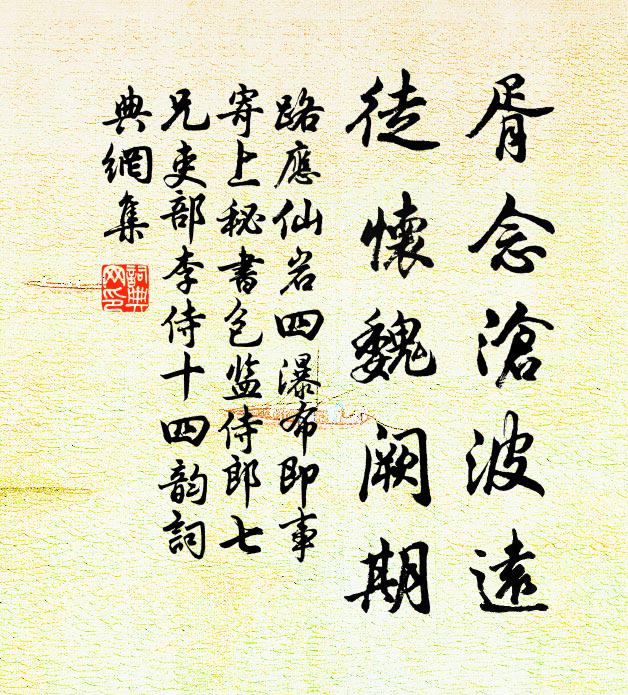 胥念滄波遠
徒懷魏阙期
路應仙岩四瀑布即事
寄上秘書包监侍郎七
兄吏部李侍十四韵詞
典網集
詞典网印